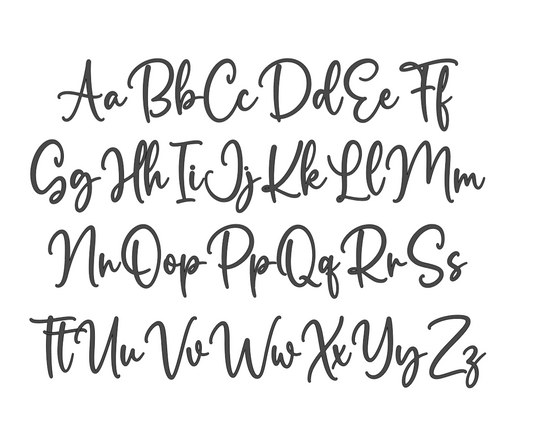 Aa Bb Cc Dd Ee Ff
Gg Hh Ii Jj Kk Ll Mm
Nn Oop Pp Qq Rr Ss
Tt Uu Vv Ww Xx Yy Zz